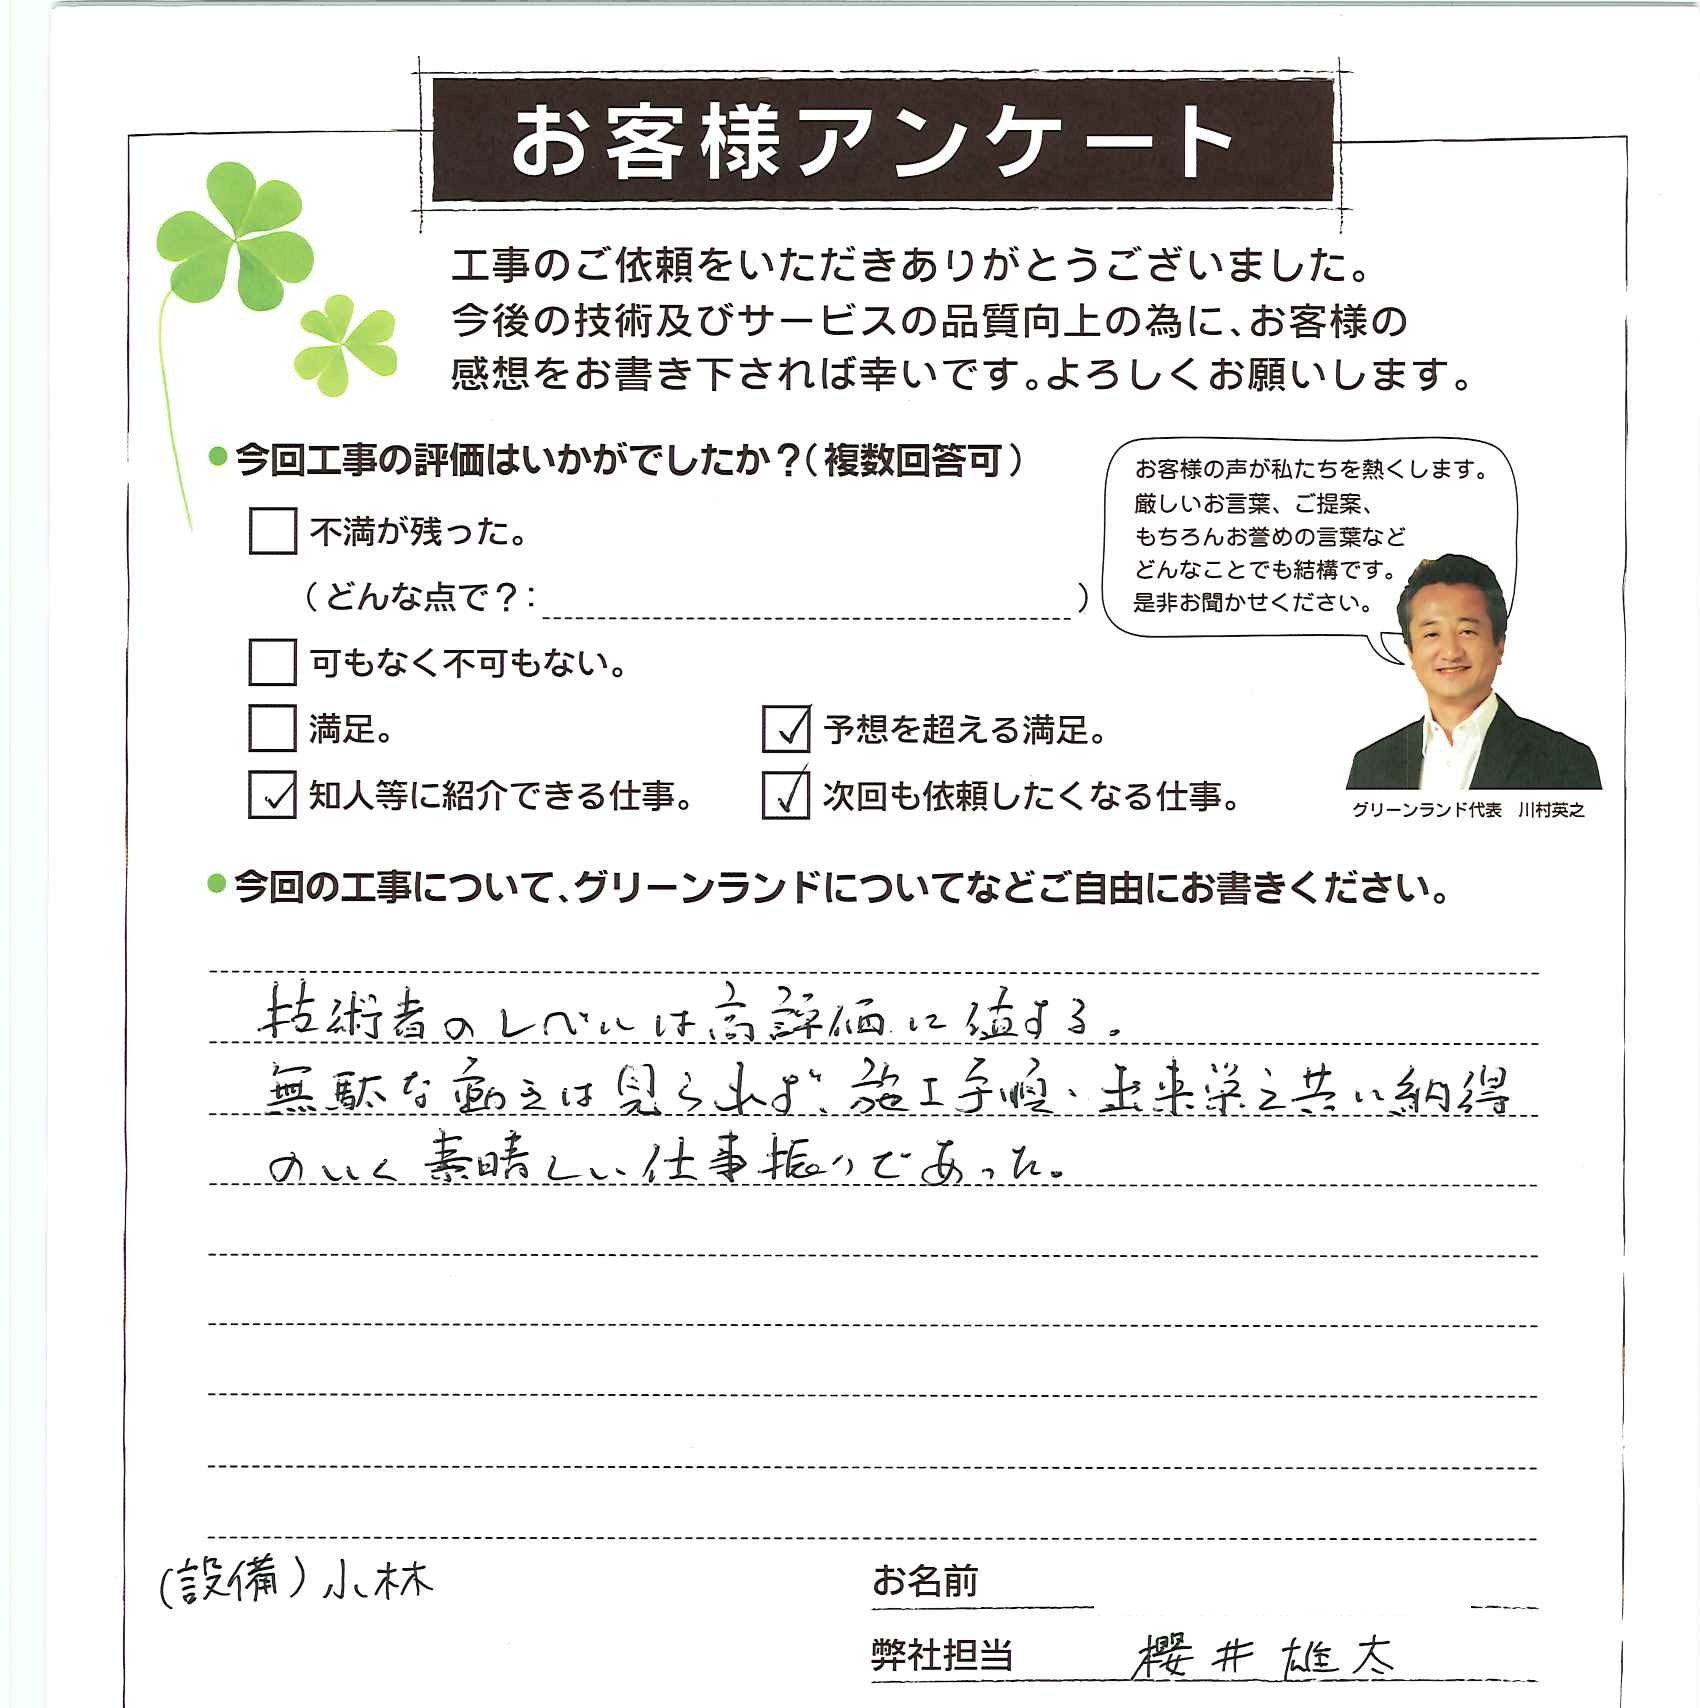 お客様アンケート
工事のご依頼をいただきありがとうございました。
今後の技術及びサービスの品質向上の為に、お客様の
感想をお書き下されば幸いです。よろしくお願いします。
●今回工事の評価はいかがでしたか？（複数回答可）
不満が残った。
（どんな点で？：　）
可もなく不可もない。
満足。
予想を超える満足。
知人等に紹介できる仕事。
次回も依頼したくなる仕事。
お客様の声が私たちを熱くします。
厳しいお言葉、ご提案、
もちろんお誉めの言葉など
どんなことでも結構です。
是非お聞かせください。
グリーンランド代表　川村英之
●今回の工事について、グリーンランドについてなどご自由にお書きください。
技術者のレベルは高評価に値する。
無駄な動きは見られず、施工手順、出来栄え共に納得
のいく素晴しい仕事振りであった。
（設備）小林
お名前
弊社担当　櫻井雄太